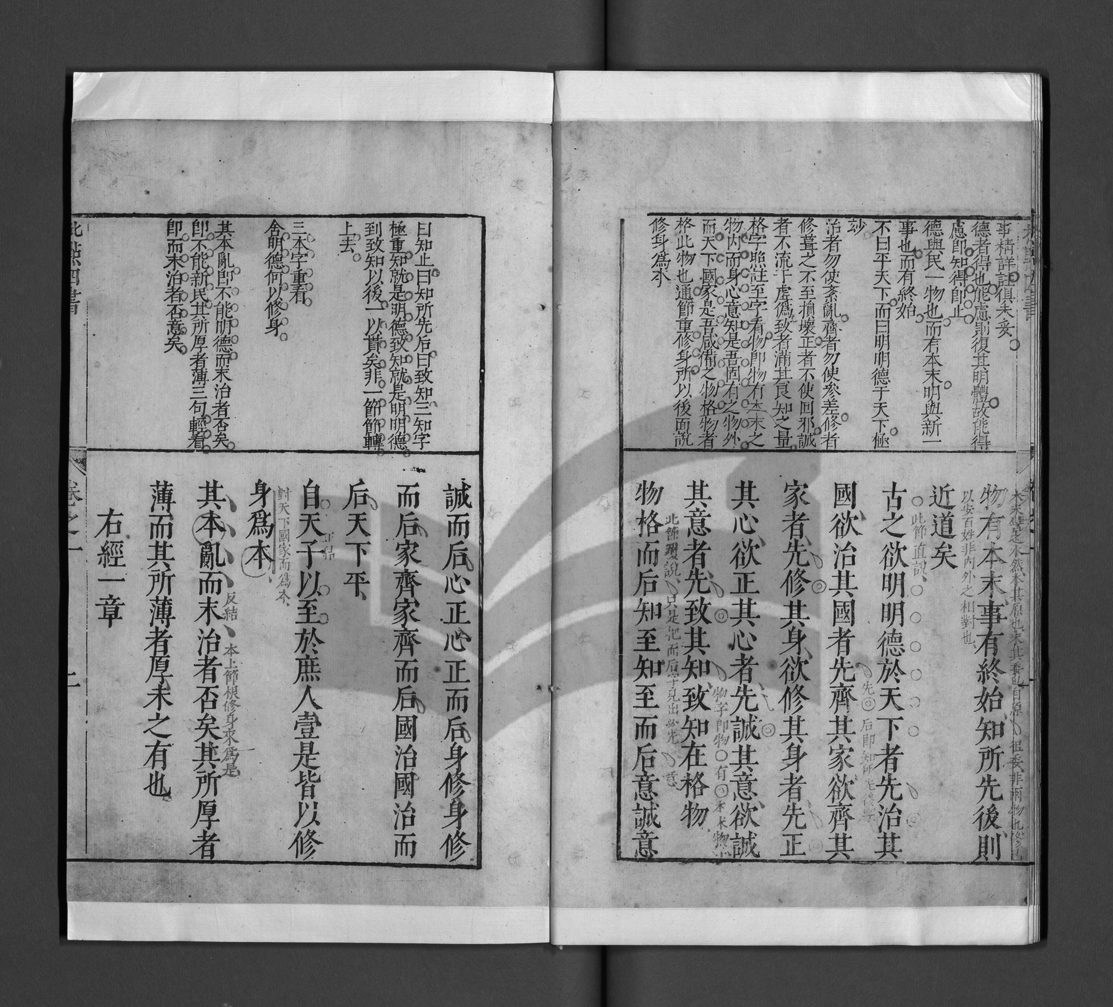 事精詳註俱未妥
德者得也能慮則復其明體故能得
慮即知得即止
德與民一物也而有本末明與新一
事也而有終始
不曰平天下而曰明明德于天下極
妙
治者勿使紊亂齊者勿使參差修者
修葺之不至損壞正者不使回邪誠
者不流于虛偽致者滿其良知之量
格字照註至字看物即物有本末之
物內而身心意知是吾固有之物外
而天下國家是吾咸備之物格物者
格此物也通節重修身所以後面說
修身為本
物有本末事有終始知所先後則
近道矣
此節直說
古之欲明明德於天下者先治其
國欲治其國者先齊其家欲齊其
家者先修其身欲修其身者先正
其心欲正其心者先誠其意欲誠
其意者先致其知致知在格物
物格而后知至知至而后意誠意
曰知止曰知所先后曰致知三知字
極重知就是明德致知就是明明德
到致知以後一以貫矣非一節節轉
上去
三本字重看
舍明德何以修身
其本亂即不能明德而末治者否矣
即不能新民其所厚者薄三句輕看
即而末治者否意矣
誠而后心正心正而后身修身修
而后家齊家齊而后國治國治而
后天下平
自天子以至於庶人壹是皆以修
對天下國家而為本
身爲本
反結
本上節條修身來為是
其本亂而末治者否矣其所厚者
薄而其所薄者厚未之有也
右經一章
卷之一
二